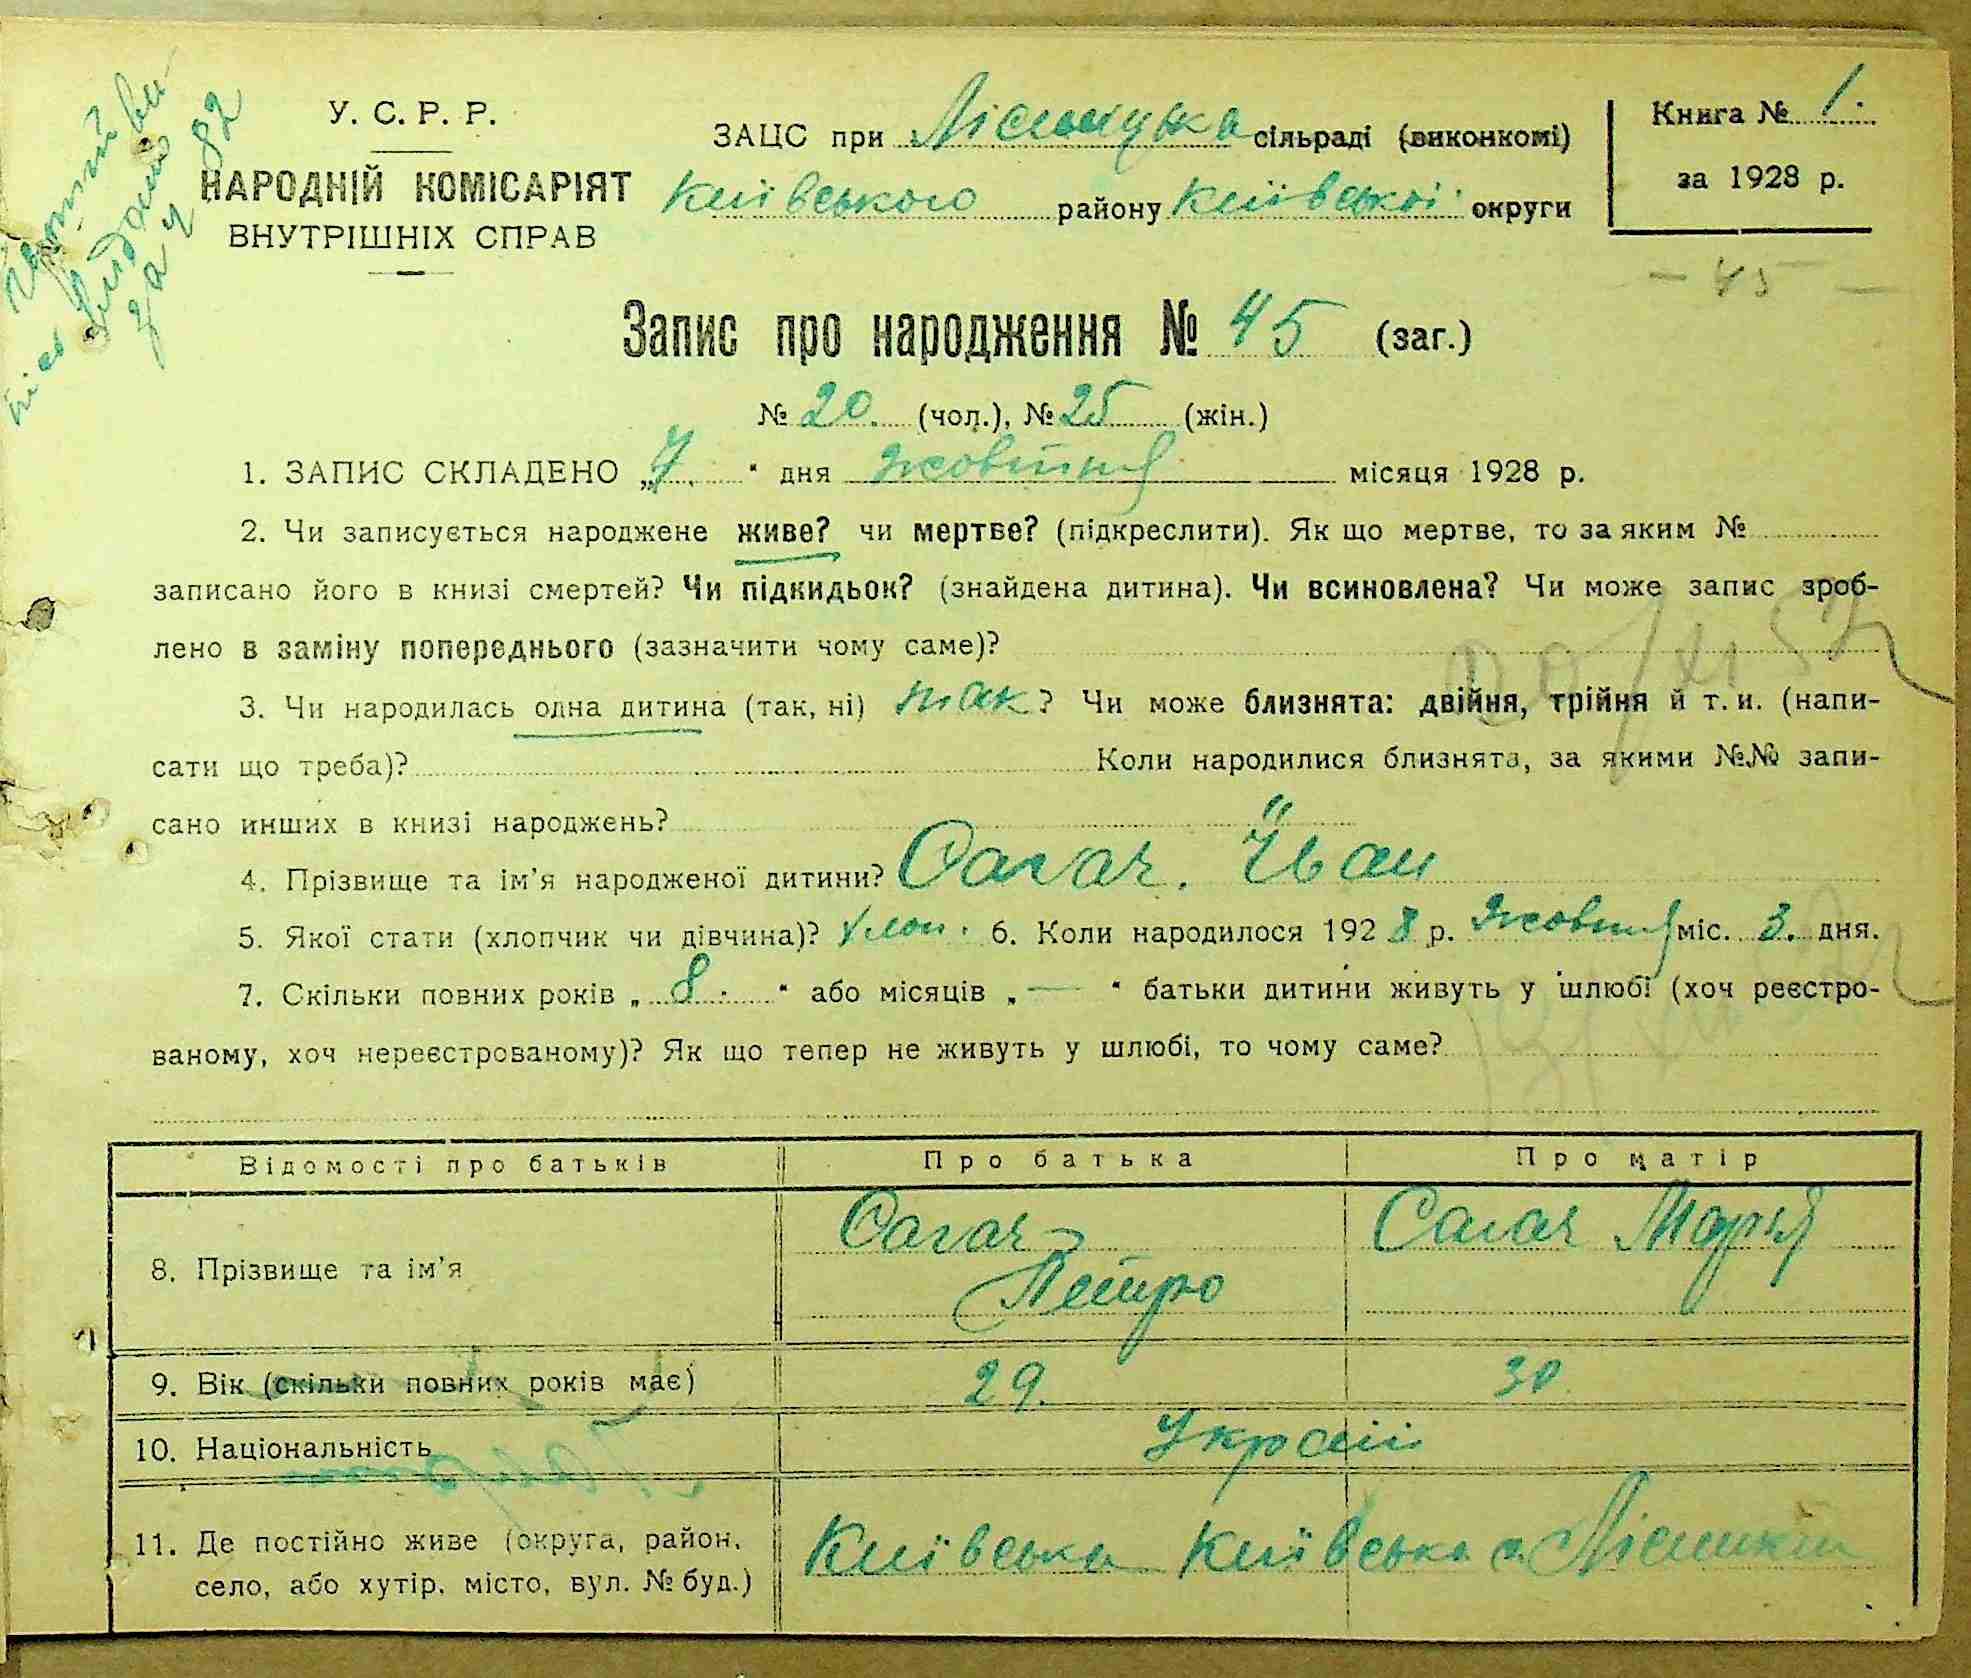 У. С. Р. Р.
НАРОДНІЙ КОМІСАРІЯТ
ВНУТРІШНІХ СПРАВ
ЗАЦС при сільраді (виконкомі)
Київського району Київської округи
Книга № 1.
за 1928 р.
- 45 -
Запис про народження № 45 (заг.)
№ 20. (чол.), № 25 (жін.)
1. ЗАПИС СКЛАДЕНО „7." дня жовтня місяця 1928 р.
2. Чи записується народжене живе? чи мертве? (підкреслити). Як що мертве, то за яким №
записано його в книзі смертей? Чи підкидьок? (знайдена дитина). Чи всиновлена? Чи може запис зроб-
лено в заміну попереднього (зазначити чому саме)?
3. Чи народилась одна дитина (так, ні) так? Чи може близнята: двійня, трійня й т. и. (напи-
сати що треба)? Коли народилися близнята, за якими №№ запи-
сано инших в книзі народжень?
4. Прізвище та ім'я народженої дитини? Сагач. Іван
5. Якої стати (хлопчик чи дівчина)? хлоп. 6. Коли народилося 1928 р. жовтня міс. 3. дня.
7. Скільки повних років „8." або місяців „—" батьки дитини живуть у шлюбі (хоч реєстро-
ваному, хоч нереєстрованому)? Як що тепер не живуть у шлюбі, то чому саме?
Відомості про батьків Про батька Про матір
8. Прізвище та ім'я Сагач Петро Сагач Марія
9. Вік (скільки повних років має) 29. 30
10. Національність Україн
11. Де постійно живе (округа, район, село, або хутір, місто, вул. № буд.) Київська Київська с. Лісники